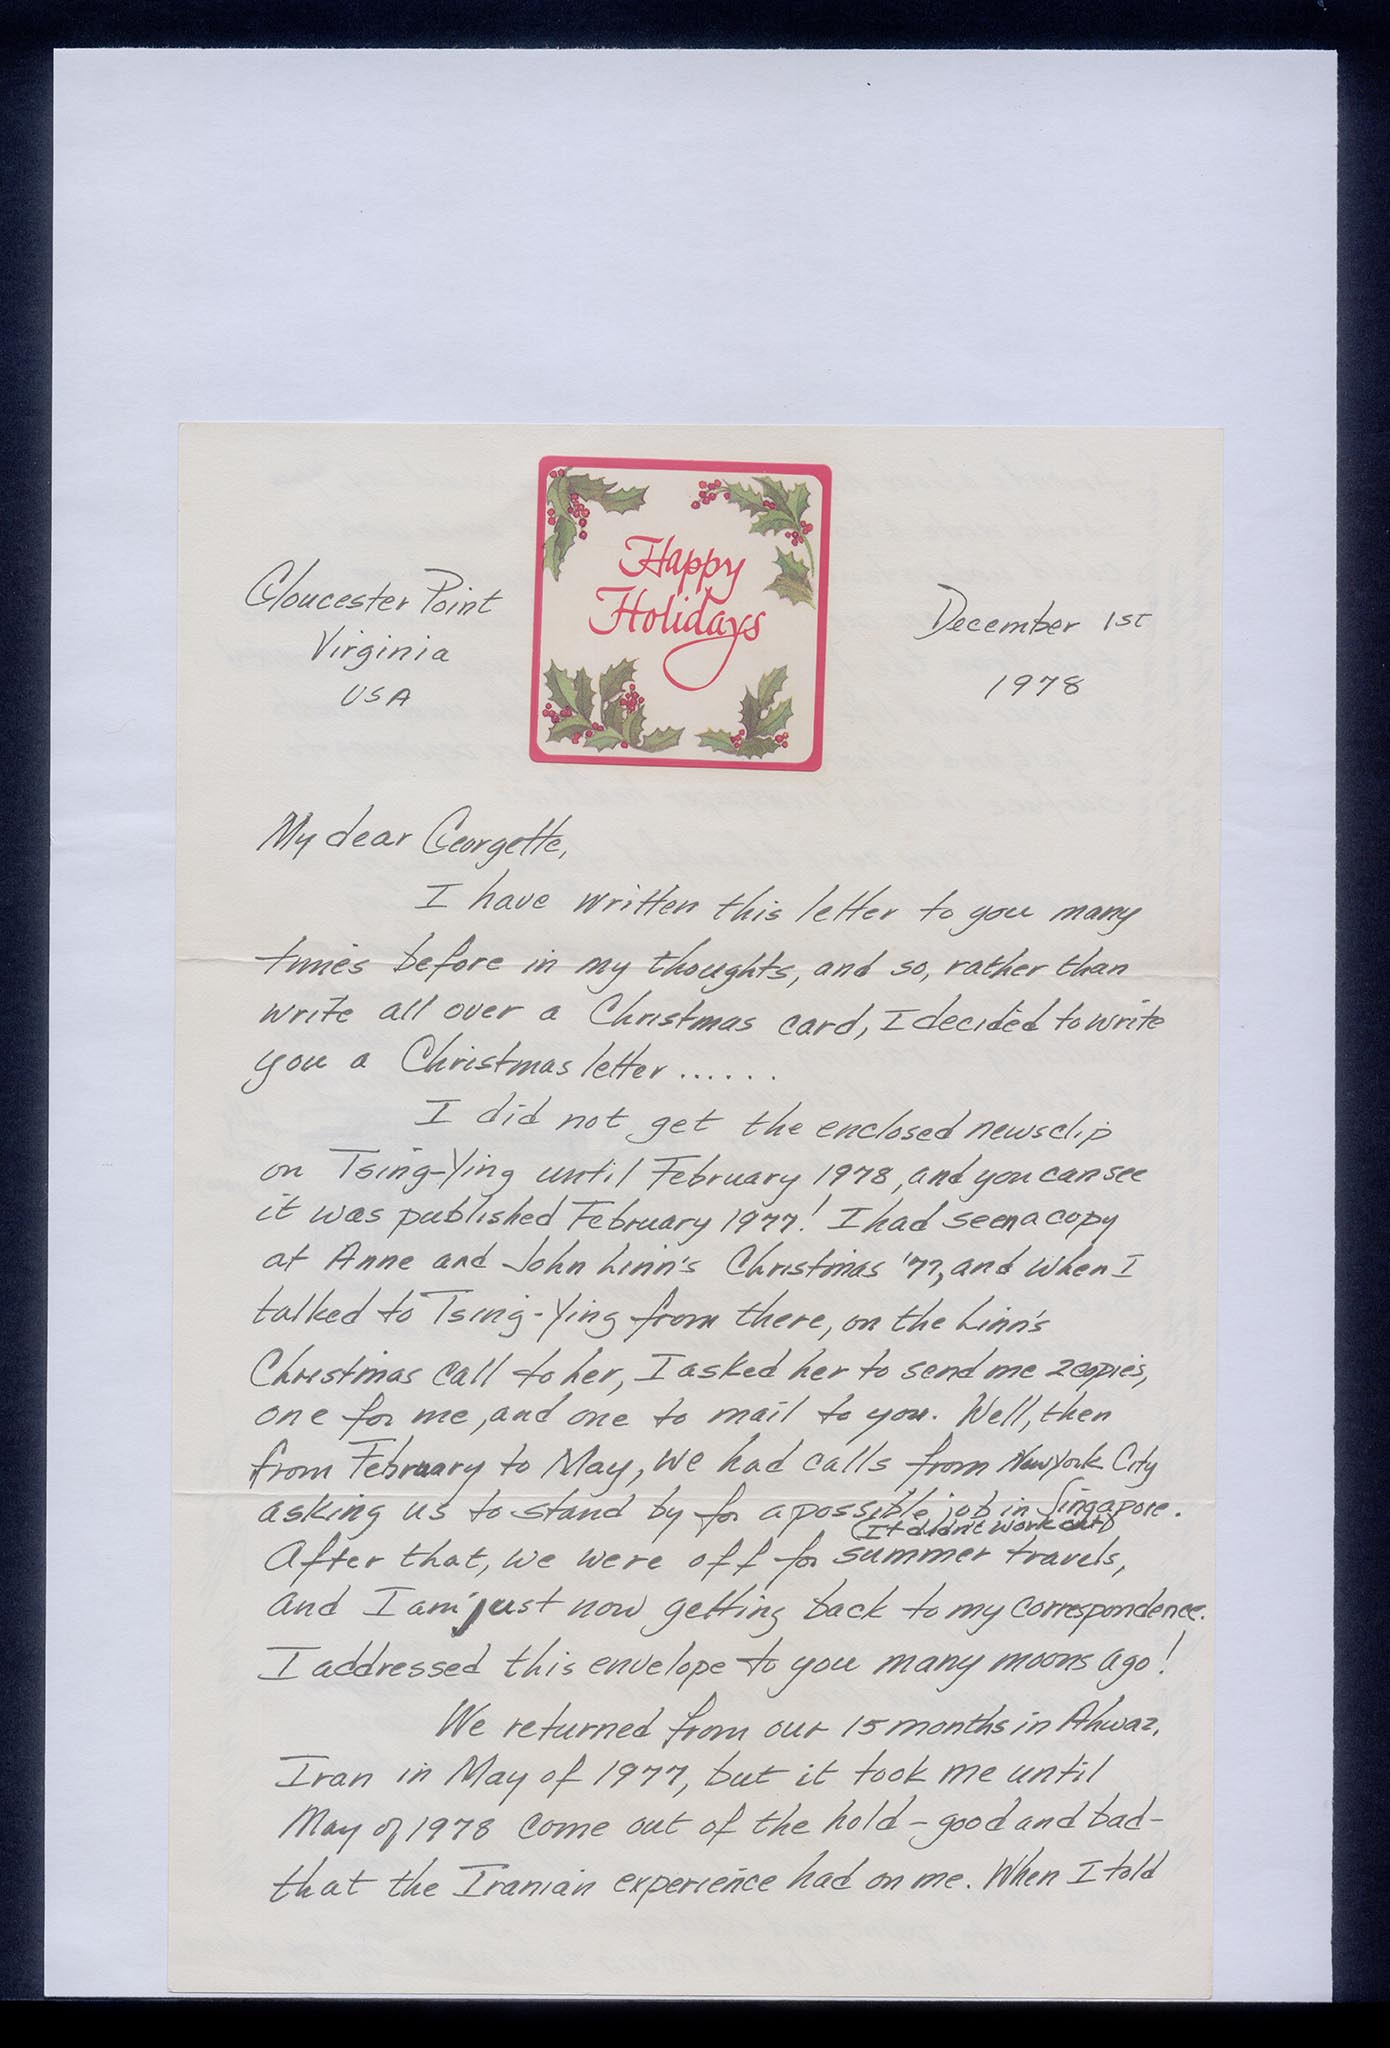 Happy
Holidays
Gloucester Point
Virginia
USA
December 1st
1978
My dear Georgette,
I have written this letter to you many
times before in my thoughts, and so, rather than
write all over a Christmas card, I decided to write
you a Christmas letter......
I did not get the enclosed newsclip
on Tsing-Ying until February 1978, and you can see
it was published February 1977! I had seen a copy
at Anne and John Linn's Christmas '77, and when I
talked to Tsing-Ying from there, on the Linn's
Christmas call to her, I asked her to send me 2 copies,
one for me, and one to mail to you. Well, then
from February to May, we had calls from New York City
asking us to stand by for a possible job in Singapore.
(It didn't work out)
After that, we were off for summer travels,
and I am just now getting back to my correspondence.
I addressed this envelope to you many moons ago!
We returned from our 15 months in Ahwaz,
Iran in May of 1977, but it took me until
May of 1978 come out of the hold - good and bad -
that the Iranian experience had on me. When I told